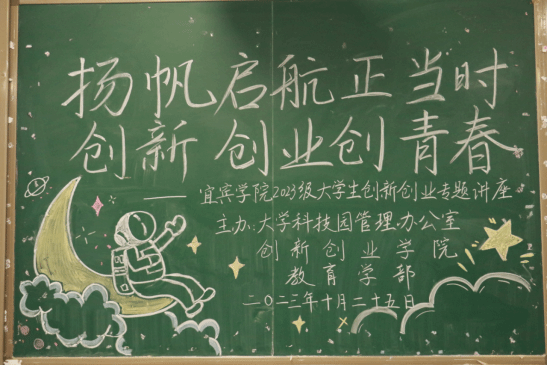 扬帆启航正当时
创新创业创青春
——宜宾学院2023级大学生创新创业专题讲座
主办:大学科技园管理办公室
创新创业学院
教育学部
二〇二三年十月二十五日